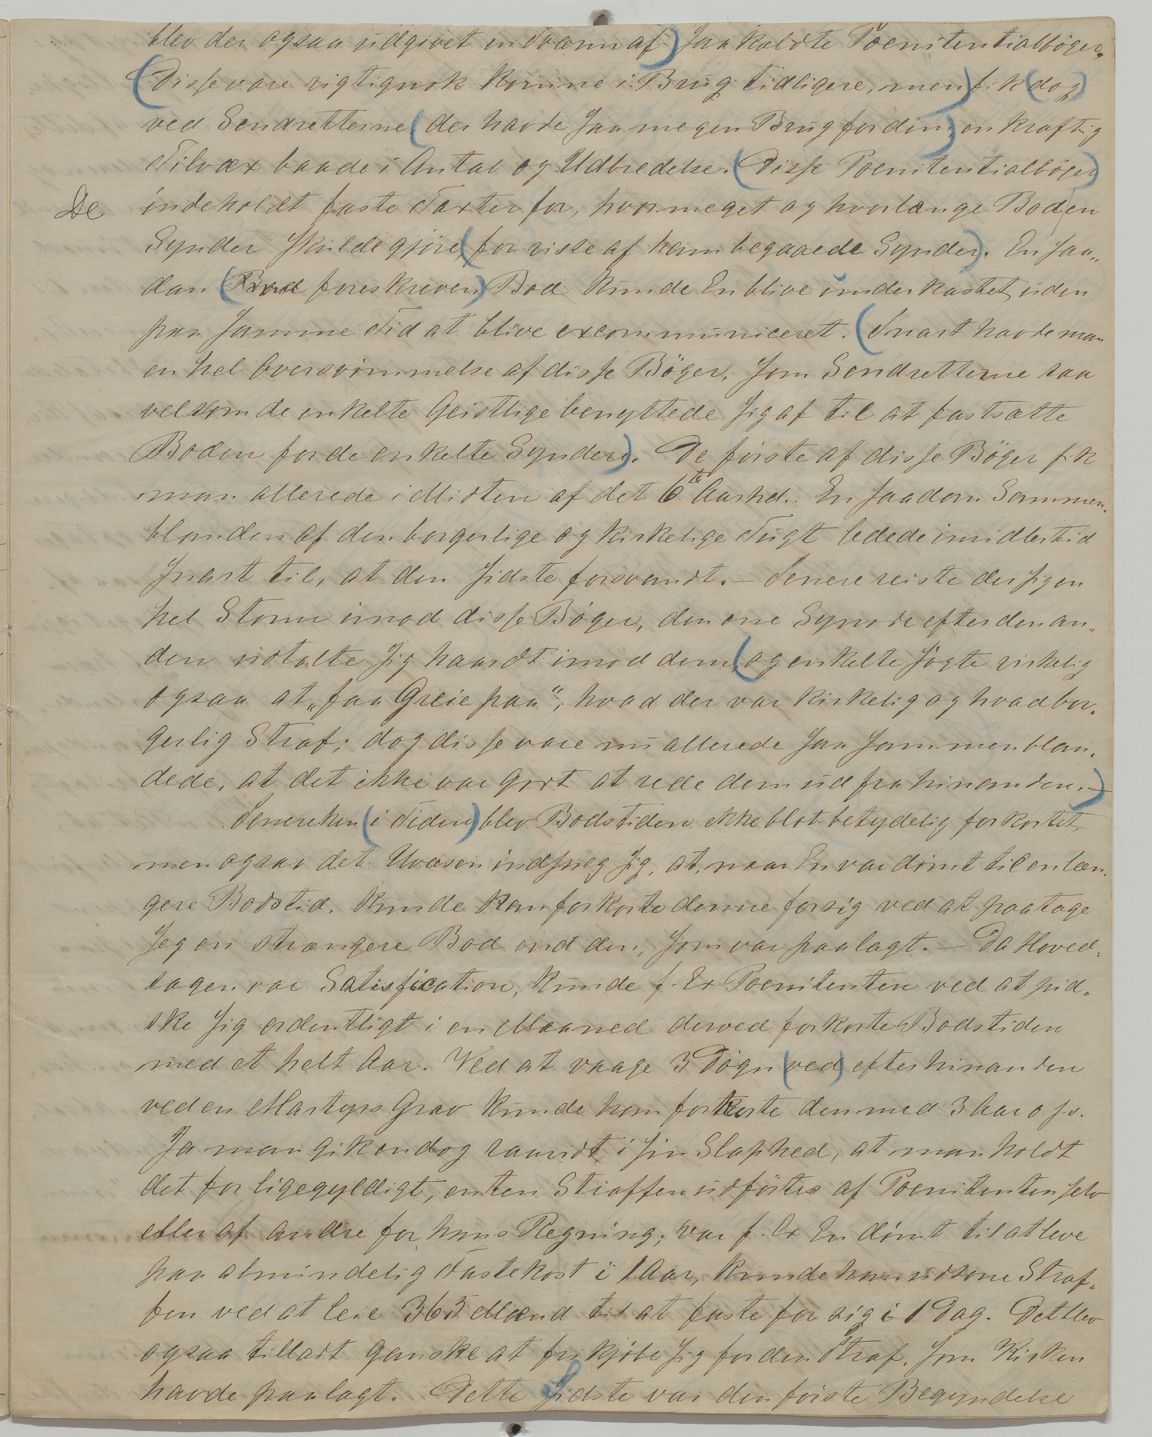 blev der ogsaa udgivet en Sværm af) saakaldte Poenitentialbøger.
(Disse vare rigtignok komne i Brug tidligere, men) fik (dog)
ved Sendretterne (der havde saa megen Brug for dem) en kraftig
Tilvæxt baade i Antal og Udbredelse. (Disse Poenitentialbøger)
De indeholdt faste Taxter for, hvormeget og hvorlænge Boden
Synder skulde gjøre (for visse af ham begaaede Synder). En saa-
dan (Bod foreskreven) Bod kunde En blive underkastet uden
paa samme Tid at blive excommuniceret. (Snart havde man
en hel Oversvømmelse af disse Bøger, som Sendretterne saa
velsom de enkelte Geistlige benyttede sig af til at fastsætte
Boden for de enkelte Synder). De første af disse Bøger fik
man allerede i Midten af det 6te Aarhd. En saadan Sammen-
blanden af den borgerlige og kirkelige Tugt ledede imidlertid
snart til, at den sidste forsvandt. — Senere reiste der sig en
hel Storm imod disse Bøger, den ene Synode efter den an-
den udtalte sig haardt imod dem, (og enkelte søgte virkelig
ogsaa at „faa Greie paa“, hvad der var kirkelig og hvad bor-
gerlig Straf; dog disse vare nu allerede saa sammenblan-
dede, at det ikke var gjort at rede dem ud fra hinanden. —)
Senerehen (i Tiden) blev Bodstiden ikke blot betydelig forkortet,
men ogsaa det Uvæsen indsneg sig, at, naar En var dømt til en læn-
gere Bodstid, kunde han forkorte denne for sig ved at paatage
sig en strængere Bod end den, som var paalagt. — Da Hoved-
sagen var Satisfication, kunde f. Ex Poenitenten ved at pid-
ske sig ordentligt i en Maaned derved forkorte Bodstiden
med et helt Aar. Ved at vaage 3 Døgn (ved) efter hinanden
ved en Martyrs Grav kunde han forkorte den med 3 Aar o. s. v.
Ja man gik endog saavidt i sin Slaphed, at man holdt
det for ligegyldigt, enten Straffen udførtes af Poenitenten selv
eller af andre for hans Regning; var f. Ex En dømt til at leve
paa almindelig Fastekost i 1 Aar, kunde han udsone Straf-
fen ved at leie 363 Mænd til at faste for sig i 1 Dag. Det blev
ogsaa tilladt ganske at frikjøbe sig for den Straf, som Kirken
havde paalagt. Dette sidste var den første Begyndelse